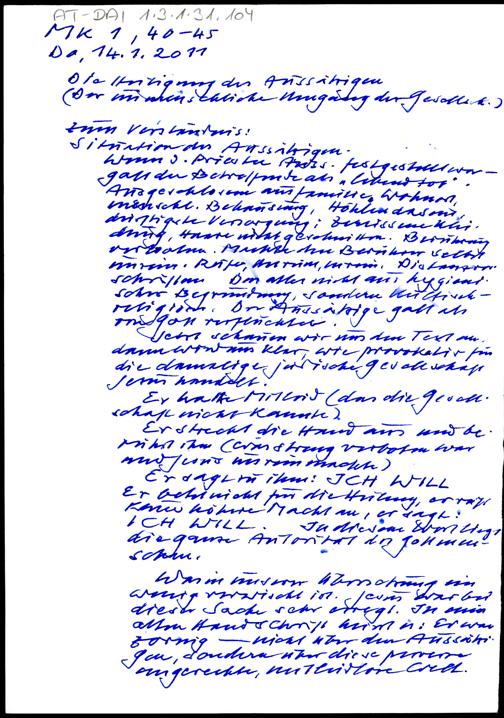 AT-DAI 1.3.1.31.104
MK 1, 40-45
Do, 14.1.2011
Die Heiligung des Aussätzigen
(Der unmenschliche Umgang der Gesellsch.)
Zum Verständnis:
Situation des Aussätzigen.
Wenn v. Priester Auss. festgestellt wor-
galt der Betroffende als „lebend tot".
Ausgeschlossen aus Familie, Wohnort,
menschl. Behausung, Höhlendasein,
dürftigste Versorgung; Zerrissene Klei-
dung, Haare nicht geschnitten. Berührung
verboten. Machte den Berührer selbst
unrein. Rufe, unrein, unrein. Distanzvor-
schriften. Das alles nicht aus hygieni-
scher Begründung, sondern kultisch-
religiös. Der Aussätzige galt als
von Gott verfluchter.
Jetzt schauen wir uns den Text an.
dann wird uns klar, wie provokativ für
die damalige jüdische Gesellschaft
Jesus handelt.
Er hatte Mitleid (das die Gesell-
schaft nicht kannte)
Er streckt die Hand aus und be-
rührt ihn (was streng verboten war
und Jesus unrein machte)
Er sagt zu ihm: ICH WILL
Er betet nicht für die Heilung, er ruft
keine höhere Macht an, er sagt:
ICH WILL. In diesem Wort liegt
die ganze Autorität des
Was in unserer Übersetzung ein
wenig verwischt ist. Jesus war bei
dieser Sache sehr erregt. In ein
alten Handschrift heißt es: Er war
zornig — nicht über den Aussätzi-
gen, sondern über diese perverse
ungerechte, mitleidlose